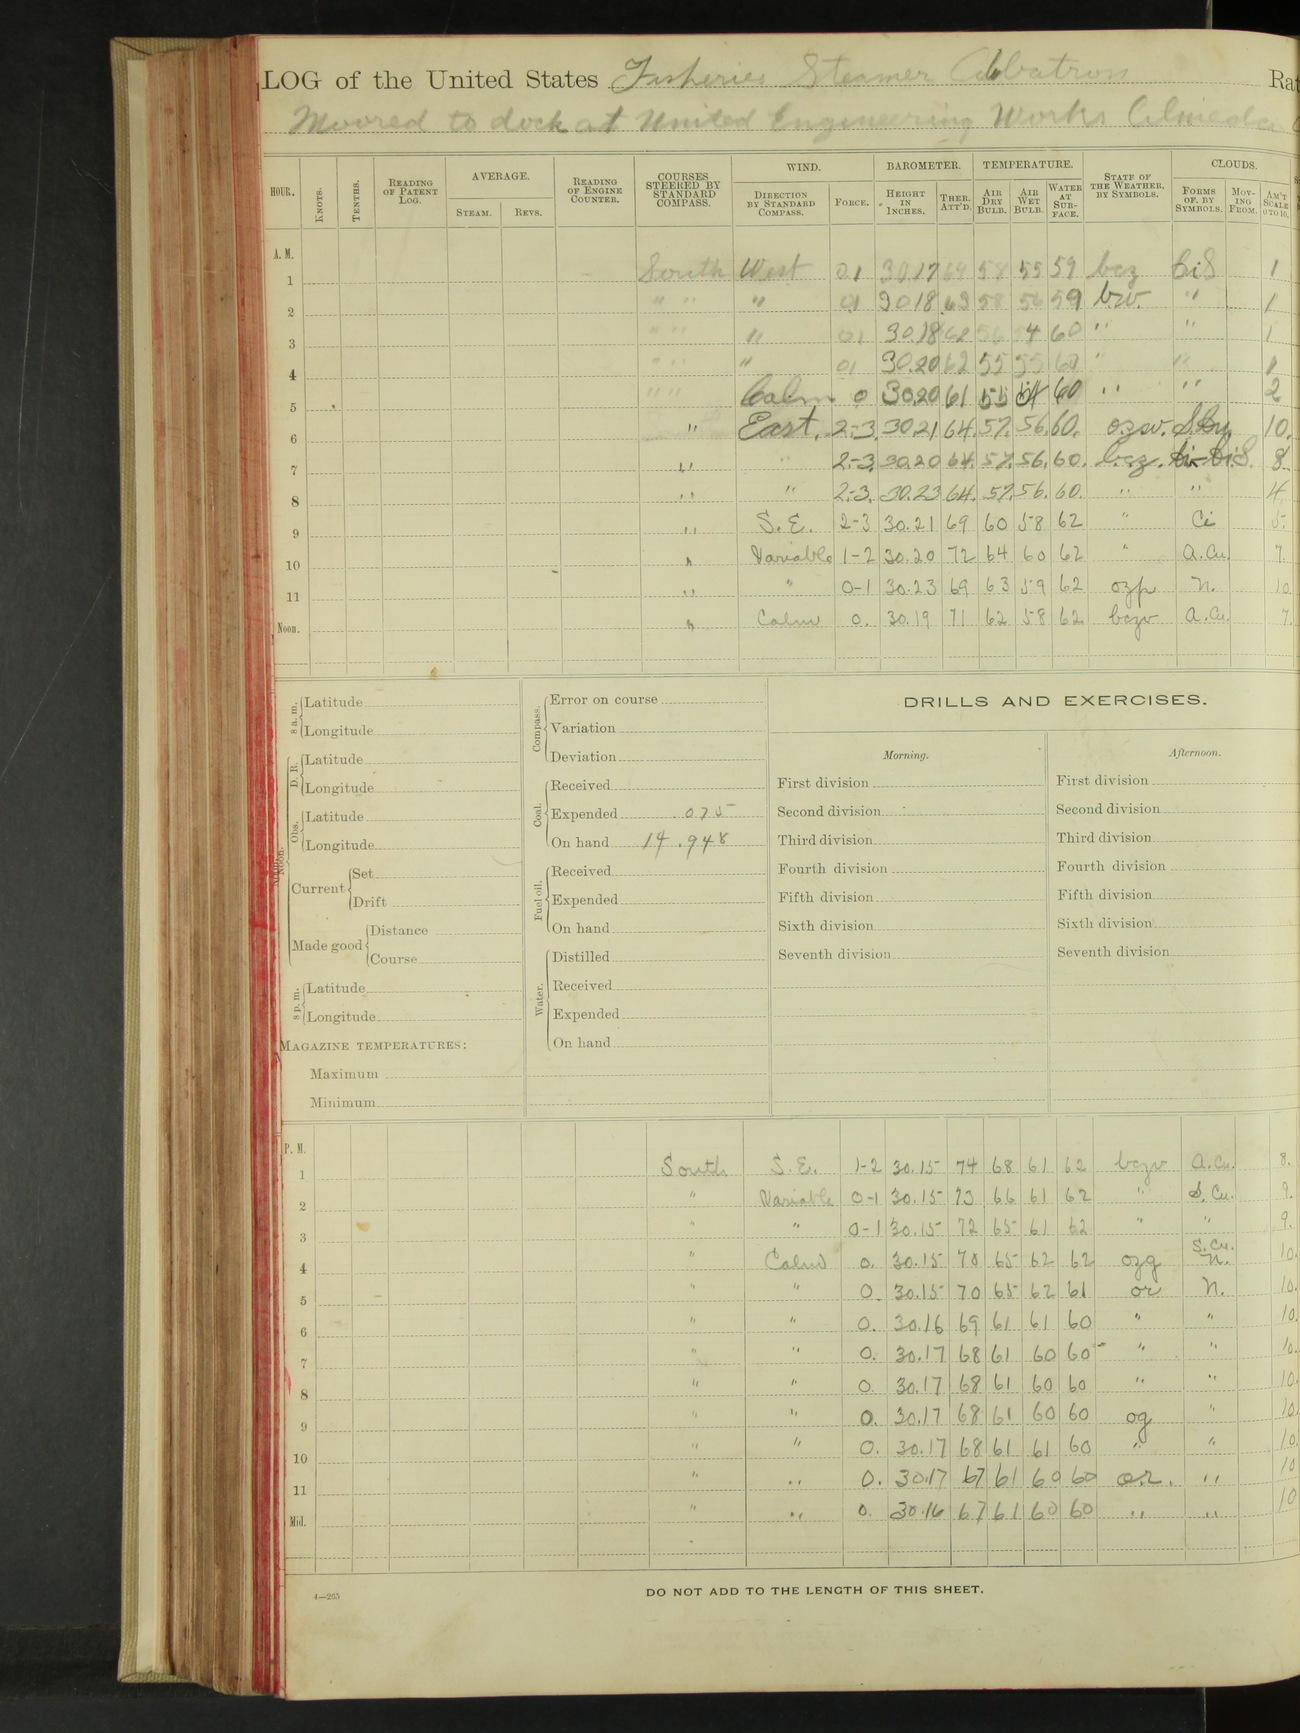 LOG of the United States Fisheries Steamer Albatross Rat
Moored to dock at United Engineering Works Almeda
HOUR. KNOTS. TENTHS. READING OF PATENT LOG. AVERAGE. STEAM. REVS. READING OF ENGINE COUNTER. COURSES STEERED BY STANDARD COMPASS. WIND. DIRECTION BY STANDARD COMPASS. FORCE. BAROMETER. HEIGHT IN INCHES. THER. ATT'D. TEMPERATURE. AIR DRY BULB. AIR WET BULB. WATER AT SURFACE. STATE OF THE WEATHER, BY SYMBOLS. CLOUDS. FORMS OF, BY SYMBOLS. MOVING FROM. AM'T SCALE 0 TO 10.
A. M.
1 South West 01 30.17 64 58 55 59 bcz CiS 1
2 " " " 01 30.18 63 58 56 59 bw. " 1
3 " " " 01 30.18 62 56 4 60 " " 1
4 " " " 01 30.20 62 55 55 60 " " 1
5 " " Calm 0 30.20 61 55 54 60 " " 2
6 " East. 2-3. 30.21 64. 57. 56. 60. ozw. S.Cu 10.
7 " " 2-3. 30.20 64. 57. 56. 60. bcz. Ci-CiS. 8.
8 " " 2-3. 30.23 64. 57. 56. 60. " " 4.
9 " S.E. 2-3 30.21 69 60 58 62 " Ci 5.
10 " Variable 1-2 30.20 72 64 60 62 " A.Cu. 7.
11 " " 0-1 30.23 69 63 59 62 ozp N. 10
Noon. " Calm 0. 30.19 71 62 58 62 bczv A.Cu. 7.
8 a. m. Latitude
Longitude
Noon. D. R. Latitude
Longitude
Obs. Latitude
Longitude
Current Set
Drift
Made good Distance
Course
8 p. m. Latitude
Longitude
MAGAZINE TEMPERATURES:
Maximum
Minimum
Compass. Error on course
Variation
Deviation
Coal. Received
Expended .075
On hand 14.948
Fuel oil. Received
Expended
On hand
Water. Distilled
Received
Expended
On hand
DRILLS AND EXERCISES.
Morning. Afternoon.
First division First division
Second division Second division
Third division Third division
Fourth division Fourth division
Fifth division Fifth division
Sixth division Sixth division
Seventh division Seventh division
P. M.
1 South S.E. 1-2 30.15 74 68 61 62 bczv A.Cu. 8.
2 " Variable 0-1 30.15 73 66 61 62 " S.Cu. 9.
3 " " 0-1 30.15 72 65 61 62 " " 9.
4 " Calm 0. 30.15 70 65 62 62 ozg S.Cu. N. 10.
5 " " 0. 30.15 70 65 62 61 or N. 10.
6 " " 0. 30.16 69 61 61 60 " " 10.
7 " " 0. 30.17 68 61 60 60 " " 10.
8 " " 0. 30.17 68 61 60 60 " " 10.
9 " " 0. 30.17 68 61 60 60 og " 10.
10 " " 0. 30.17 68 61 61 60 " " 10.
11 " " 0. 30.17 67 61 60 60 o.r. " 10
Mid. " " 0. 30.16 67 61 60 60 " " 10
4—265
DO NOT ADD TO THE LENGTH OF THIS SHEET.